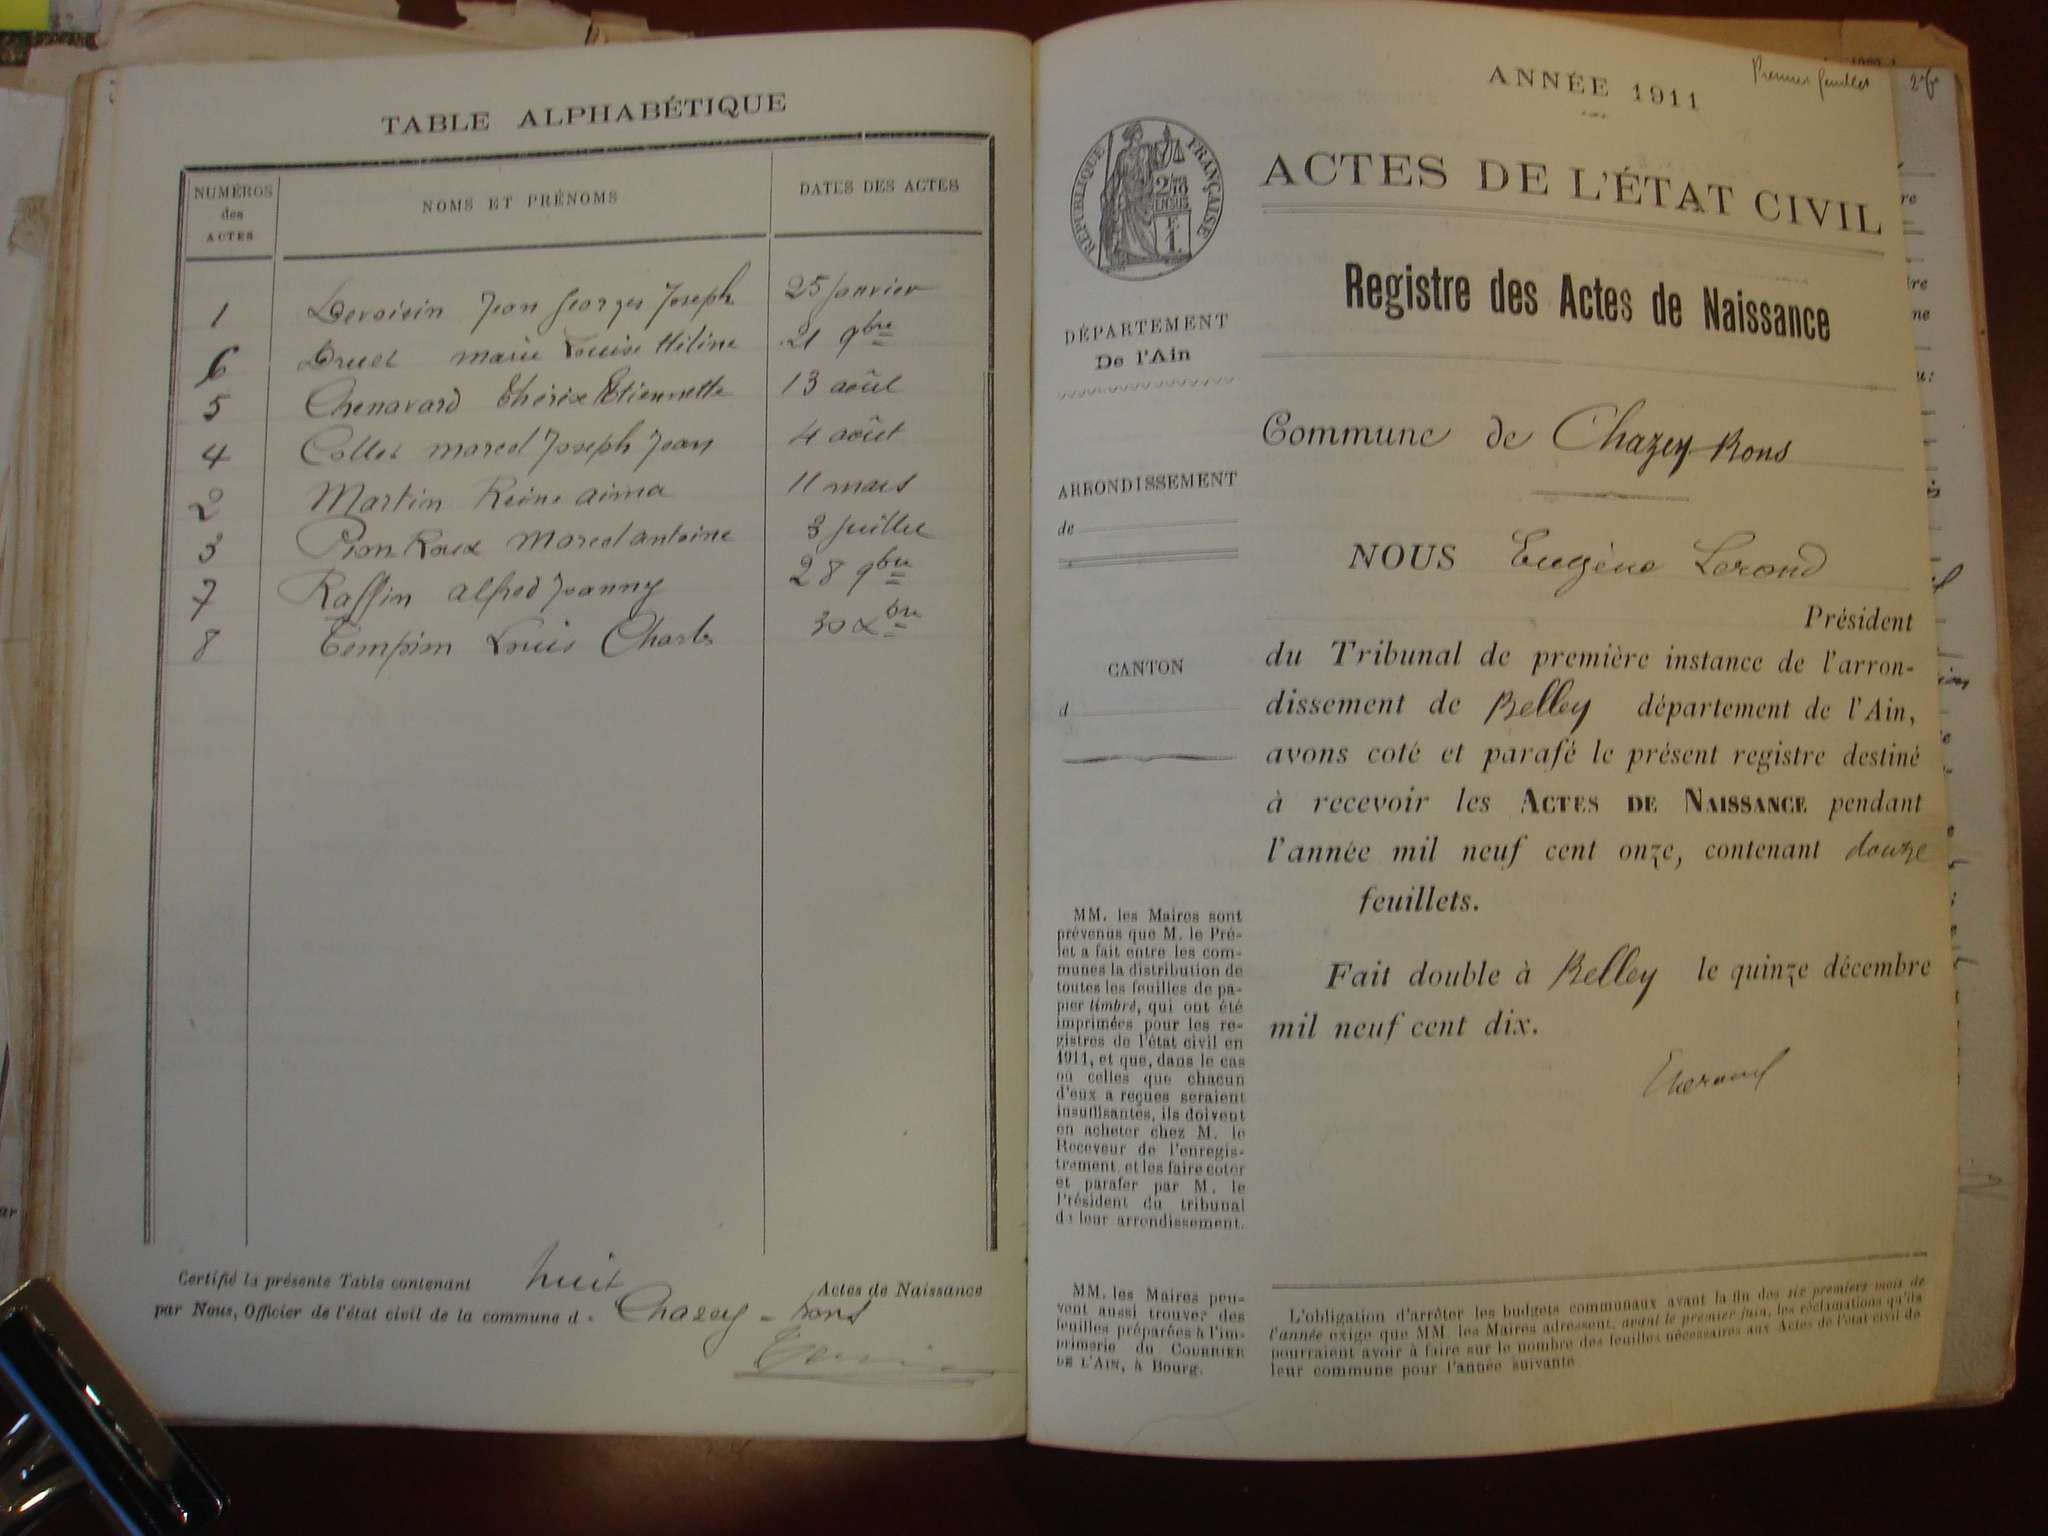 TABLE ALPHABÉTIQUE
NUMÉROS des ACTES NOMS ET PRÉNOMS DATES DES ACTES
1 Devoisin Jean Georges Joseph 25 Janvier
6 Druet marie Louise Hélène 21 9bre
5 Chenavard Thérèse Etiennette 13 août
4 Collet marcel Joseph Jean 4 août
2 Martin Reine aima 11 mars
3 Pion Roux Marcel antoine 3 Juillet
7 Raffin alfred Joanny 28 9bre
8 Tempion Louis Charles 30 Xbre
Certifié la présente Table contenant huit Actes de Naissance
par Nous, Officier de l'état civil de la commune d Chazey-bons
Premier feuillet
ANNÉE 1911
RÉPUBLIQUE FRANÇAISE
ACTES DE L'ÉTAT CIVIL
Registre des Actes de Naissance
DÉPARTEMENT
De l'Ain
Commune de Chazey Bons
ARRONDISSEMENT
de
NOUS Eugène Lerond
Président
CANTON
d
du Tribunal de première instance de l'arron-
dissement de Belley département de l'Ain,
avons coté et parafé le présent registre destiné
à recevoir les ACTES DE NAISSANCE pendant
l'année mil neuf cent onze, contenant douze
feuillets.
Fait double à Belley le quinze décembre
mil neuf cent dix.
MM. les Maires sont
prévenus que M. le Pré-
fet a fait entre les com-
munes la distribution de
toutes les feuilles de pa-
pier timbré, qui ont été
imprimées pour les re-
gistres de l'état civil en
1911, et que, dans le cas
où celles que chacun
d'eux a reçues seraient
insuffisantes, ils doivent
en acheter chez M. le
Receveur de l'enregis-
trement et les faire coter
et parafer par M. le
Président du tribunal
de leur arrondissement.
MM. les Maires peu-
vent aussi trouver des
feuilles préparées à l'im-
primerie du COURRIER
DE L'AIN, à Bourg.
L'obligation d'arrêter les budgets communaux avant la fin des six premiers mois de
l'année exige que MM. les Maires adressent, avant le premier juin, les réclamations qu'ils
pourraient avoir à faire sur le nombre des feuilles nécessaires aux Actes de l'état civil de
leur commune pour l'année suivante